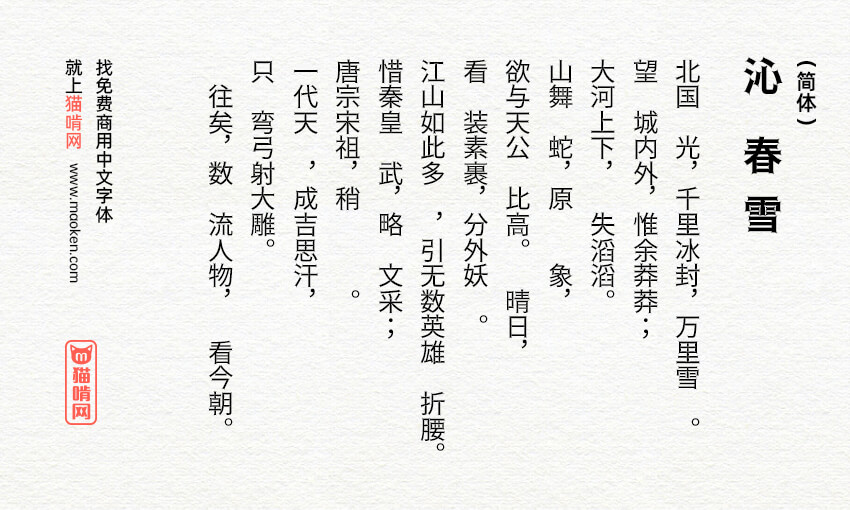 (简体)
沁 春 雪
北国 光，千里冰封，万里雪 。
望 城内外，惟余莽莽；
大河上下， 失滔滔。
山舞 蛇，原 象，
欲与天公 比高。 晴日，
看 装素裹，分外妖 。
江山如此多 ，引无数英雄 折腰。
惜秦皇 武，略 文采；
唐宗宋祖，稍 。
一代天 ，成吉思汗，
只 弯弓射大雕。
往矣，数 流人物， 看今朝。
找免费商用中文字体
就上猫啃网 www.mooken.com
猫啃网